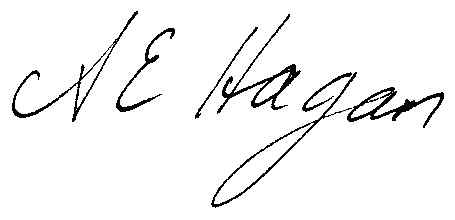 A E Hagan